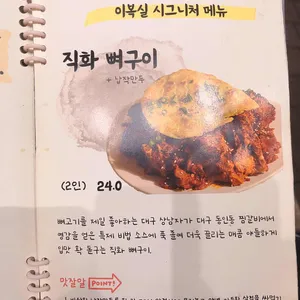 이복실 시그니쳐 메뉴
직화 뼈구이
+ 납작만두
(2인) 24.0
뼈고기를 제일 좋아하는 대구 상남자가 대구 동인동 찜갈비에서
영감을 얻은 특제 비법 소스에 푹 졸여 더욱 끌리는 매콤 아늘하게
입맛 확 돋구는 직화 뼈구이.
맛잘알 POINT!